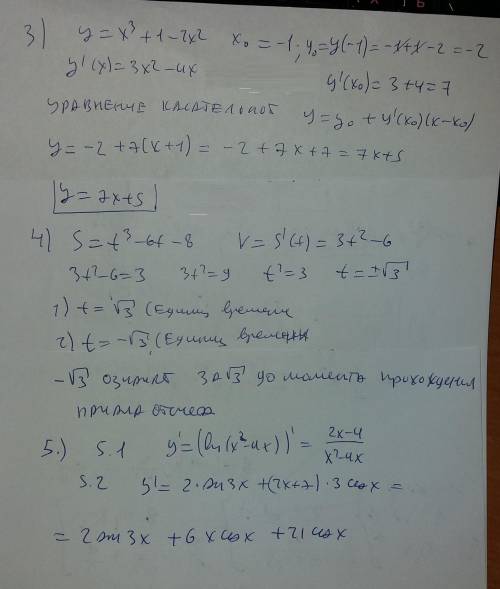 3) y = x³ + 1 - 2x² x₀ = -1; y₀ = y(-1) = -1 + 1 - 2 = -2
y'(x) = 3x² - 4x y'(x₀) = 3 + 4 = 7
уравнение касательной y = y₀ + y'(x₀)(x - x₀)
y = -2 + 7(x + 1) = -2 + 7x + 7 = 7x + 5
y = 7x + 5
4) S = t³ - 6t - 8 V = S'(t) = 3t² - 6
3t² - 6 = 3 3t² = 9 t² = 3 t = ±√3
1) t = √3 (единиц времени
2) t = -√3 (единиц времени
-√3 означает за √3 до момента прохождения
начала отсчета
5.) 5.1 y' = (ln(x² - 4x))' = (2x - 4)/(x² - 4x)
5.2 y' = 2·sin3x + (2x + 7)·3cosx =
= 2sin3x + 6xcosx + 21cosx